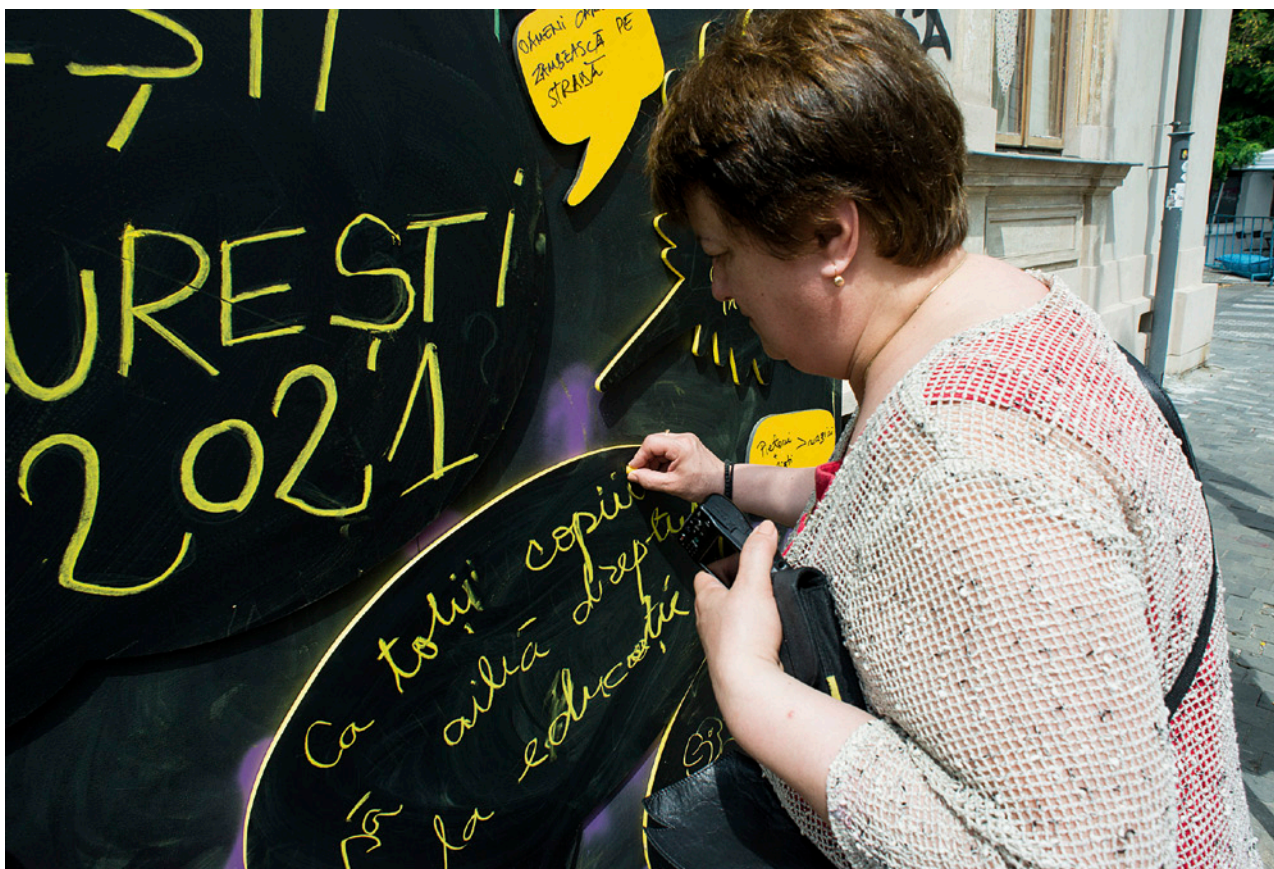 EȘTI
UREȘTI
2021
OAMENI CARE
ZÂMBEASCĂ PE
STRADĂ
Pietoni Dragi
Ca toții copiii
să aibă dreptu
la educație